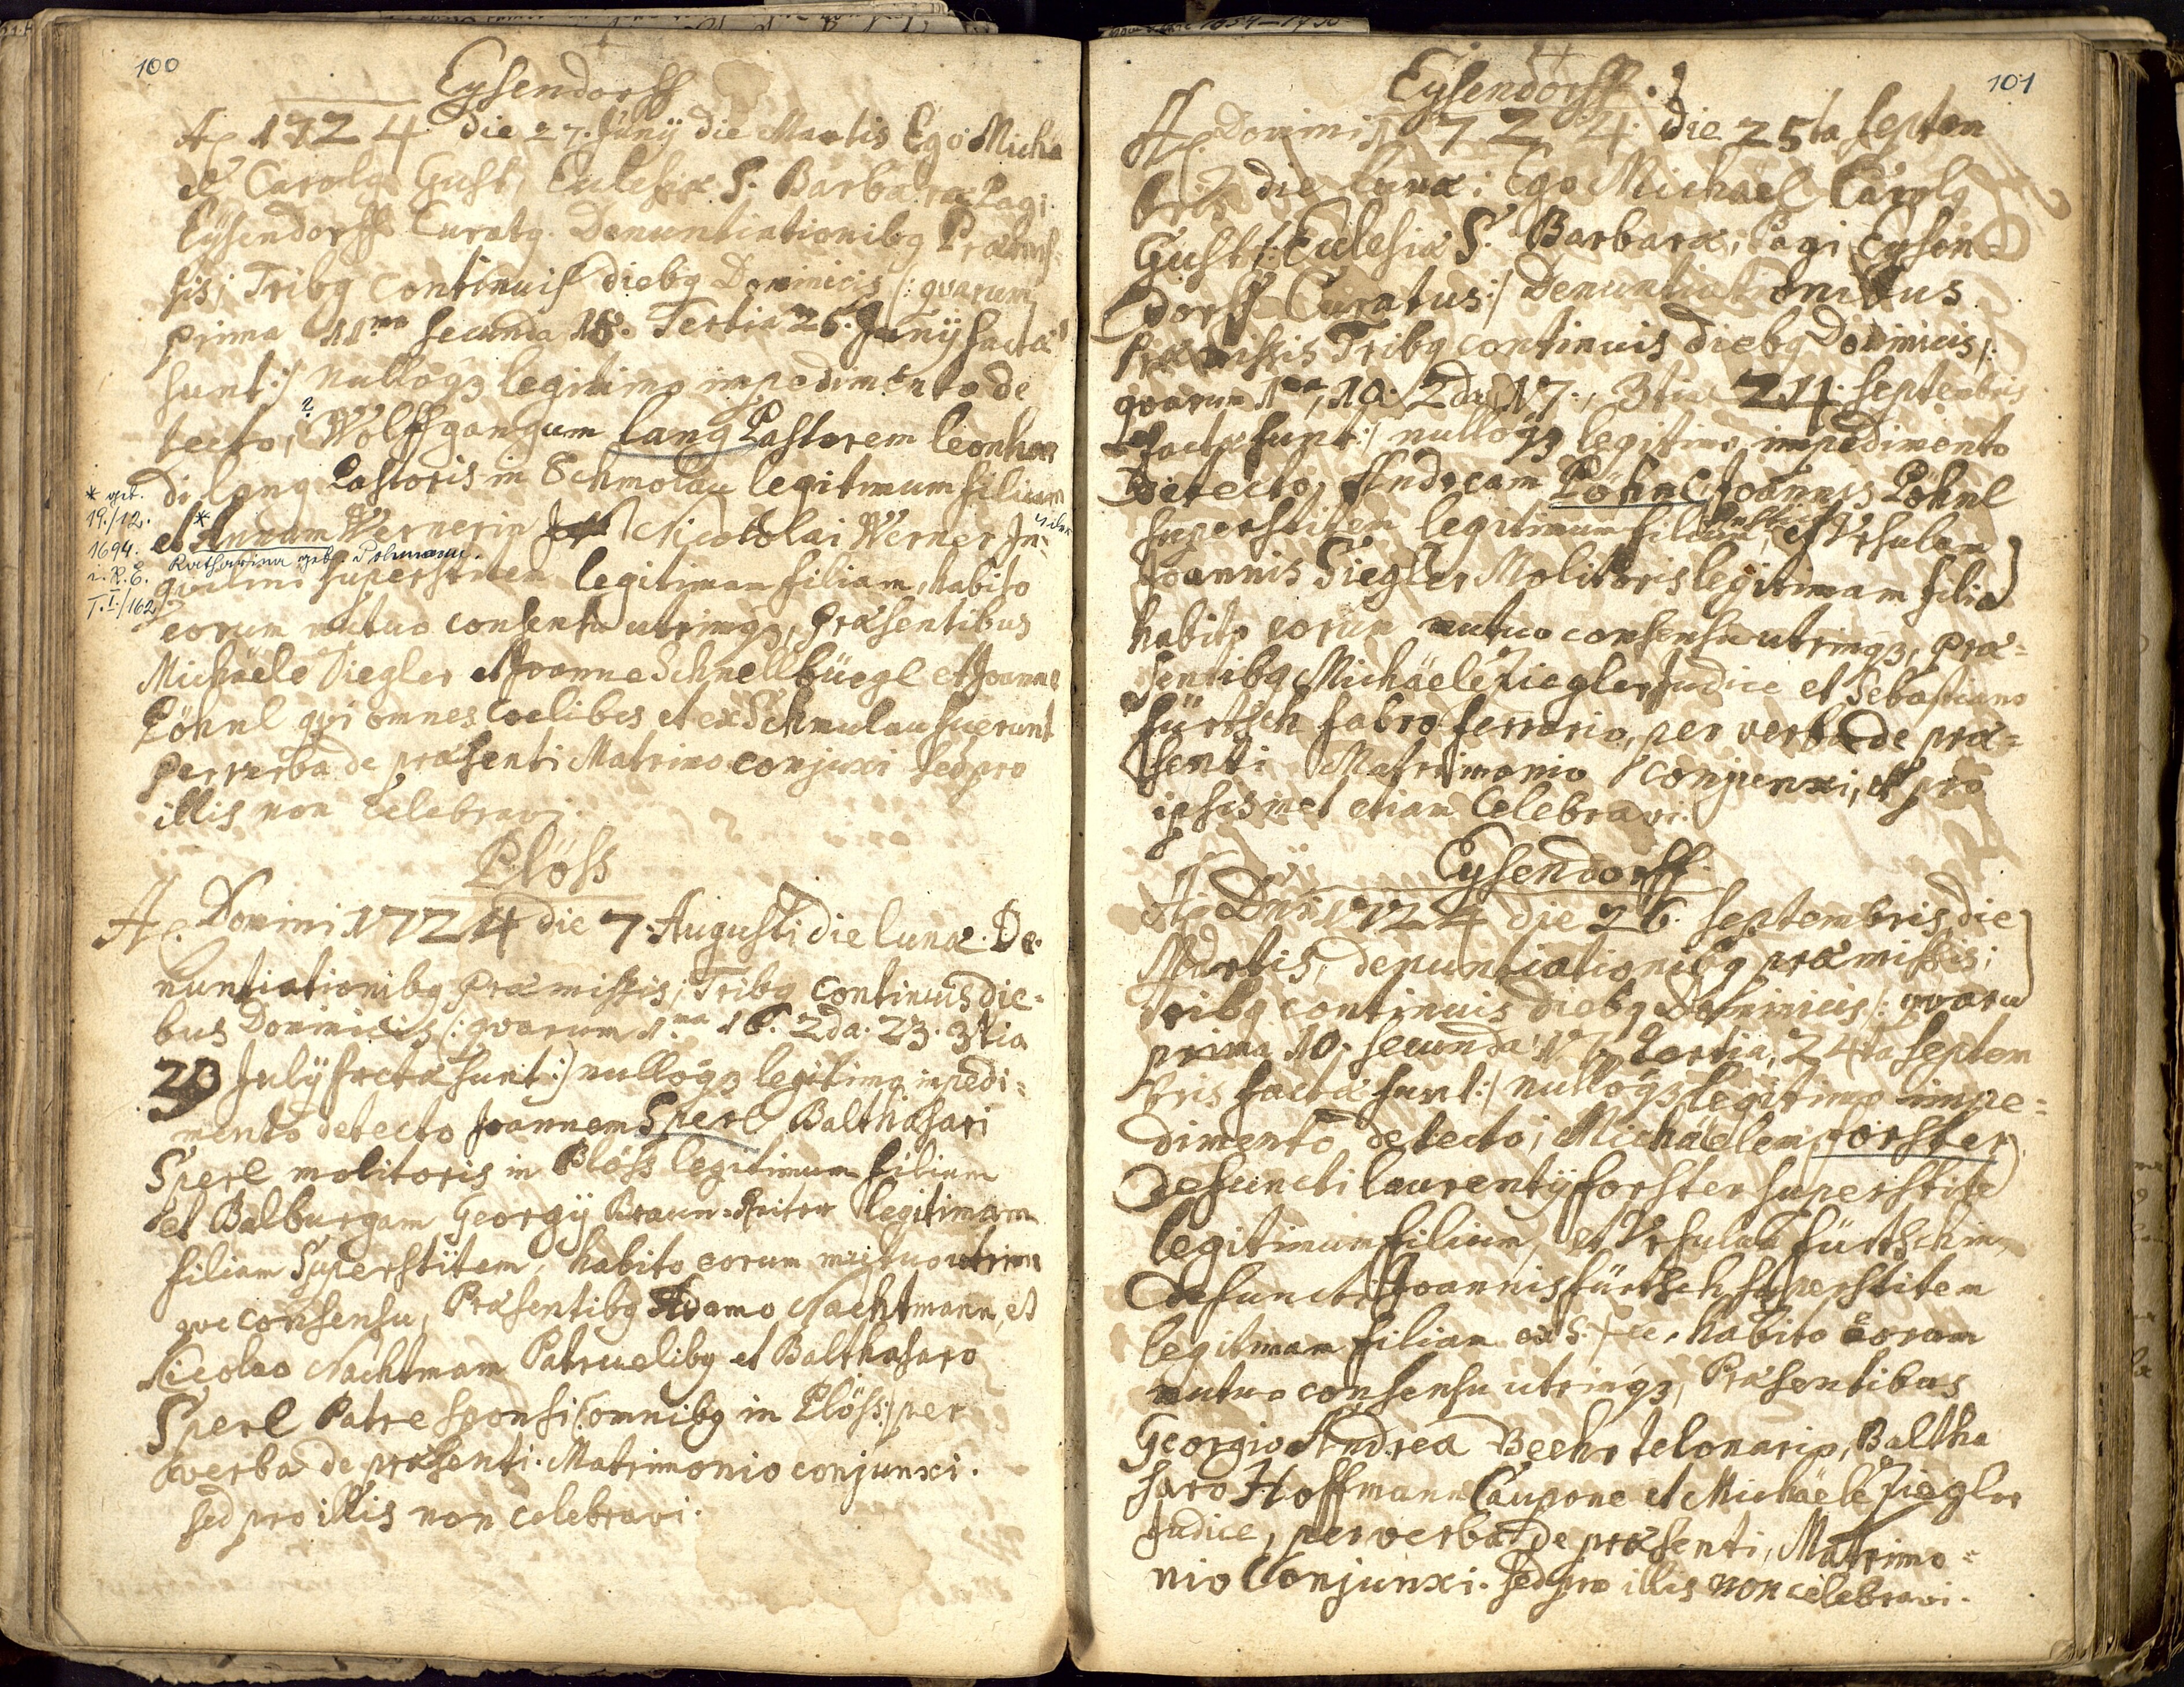 100
Eysendorff
Ao 1724 die 27. Junÿ die Martis Ego Micha
el Carolg Gust, Eclesiæ S. Barbaræ Pagi
Eysendorff Curatg. Denuntiationibg Præmis=
sis, Tribg continuis diebg Dominicis /: qvarum
prima 11ma secunda 18. Tertia 25. Junÿ factæ
sunt :/ nulloq3 legitimo impedimento de
tecto, Wolffgangum Lang Pastorem Leonhar
di Lang Pastoris in Schmolau legitimum filium
et Annam Wernerin Nicolai Werner In=
qvilini superstitem legitimam filiam, habito
* geb.
19./12.
1694.
i. R. E.
T. I./162
*
Katharina geb.
eorum mutuo consensu utrinq3, Præsentibus
Michaele Ziegler et Joanne Schnellbüegl et Joanne
Pöhnl qvi omnes Coelibes et ex Schmulau fuerunt
per verba de præsenti Matrimo conjuxi sed pro
illis non Celebravi.
Plöss
Ao. Domini 1724 die 7. Augusti die lunæ. De=
nuntiationibg Præmissis, Tribg continuis die=
bus Dominicis /: qvarum 1.ma 16. 2da. 23. 3tia
Julÿ factæ sunt :/ nulloq3 legitimo impedi=
mento detecto Joannem Sperl Balthasari
Sperl molitoris in Plöss legitimum filium
et Balburgam Georgÿ Braun=Reiter legitimam
filiam Superstitem, habito eorum mutuo utrin
qve consensu, Præsentibg Adamo Nachtmann, et
Nicolao Nachtmam Patruelibg et Balthasaro
Sperl Patre sponsi /: omnibg in Plöss :/ per
verba de præsenti. Matrimonio conjunxi.
sed pro illis non celebravi.
101
Eysendorff.
Ao Domini 1724 die 25ta Septem
bris die lunæ: Ego Michael Carolg
Gust /: Eclesiæ S. Barbaræ, Pagi Eysen=
dorff Curatus :/ Denuntiationibus
Præmissis Tribg continuis diebg Dominicis /:
qvarum 1ma, 10. 2da 17., 3tia 24. septembris
factæ sunt :/ nulloq3 legitimo impedimento
Detecto, Andream Pöhnl Joannis Pöhnl
superstitem legitimum filium, et Ursulam
Joannis Ziegler Molitoris legitimam filia
habito eorum mutuo consensu utrinq3, Præ=
sentibg Michaele Ziegler Judice et Sebastiano
fürtsch fabro ferrario, per verba de præ=
senti Matrimonio conjunxi, et pro
ipsismet etiam Celebravi.
Eysendorff
Ao Dni 1724 die 26. Septembris, die
Martis, denuntiationibg præmissis;
Tribg continuis diebg Dominicis /: qvaru
prima 10. secunda 17. tertia, 24ta Septem
bris factæ sunt :/ nulloq3 legitimo impe=
dimento detecto, Michaelem forster
Defuncti Laurentÿ forster superstite
legitimum filium, et Ursulam fürtschin,
Defuncti Joannis fürtsch superstitem
legitimam filiam habito eorum
mutuo consensu utrinq3, Præsentibus
Georgio Andrea Beehr telonario, Baltha
saro Hoffmann Caupone et Michaele Ziegler
Judice, per verba de præsenti, Matrimo=
nio Conjunxi. sed pro illis non celebravi.